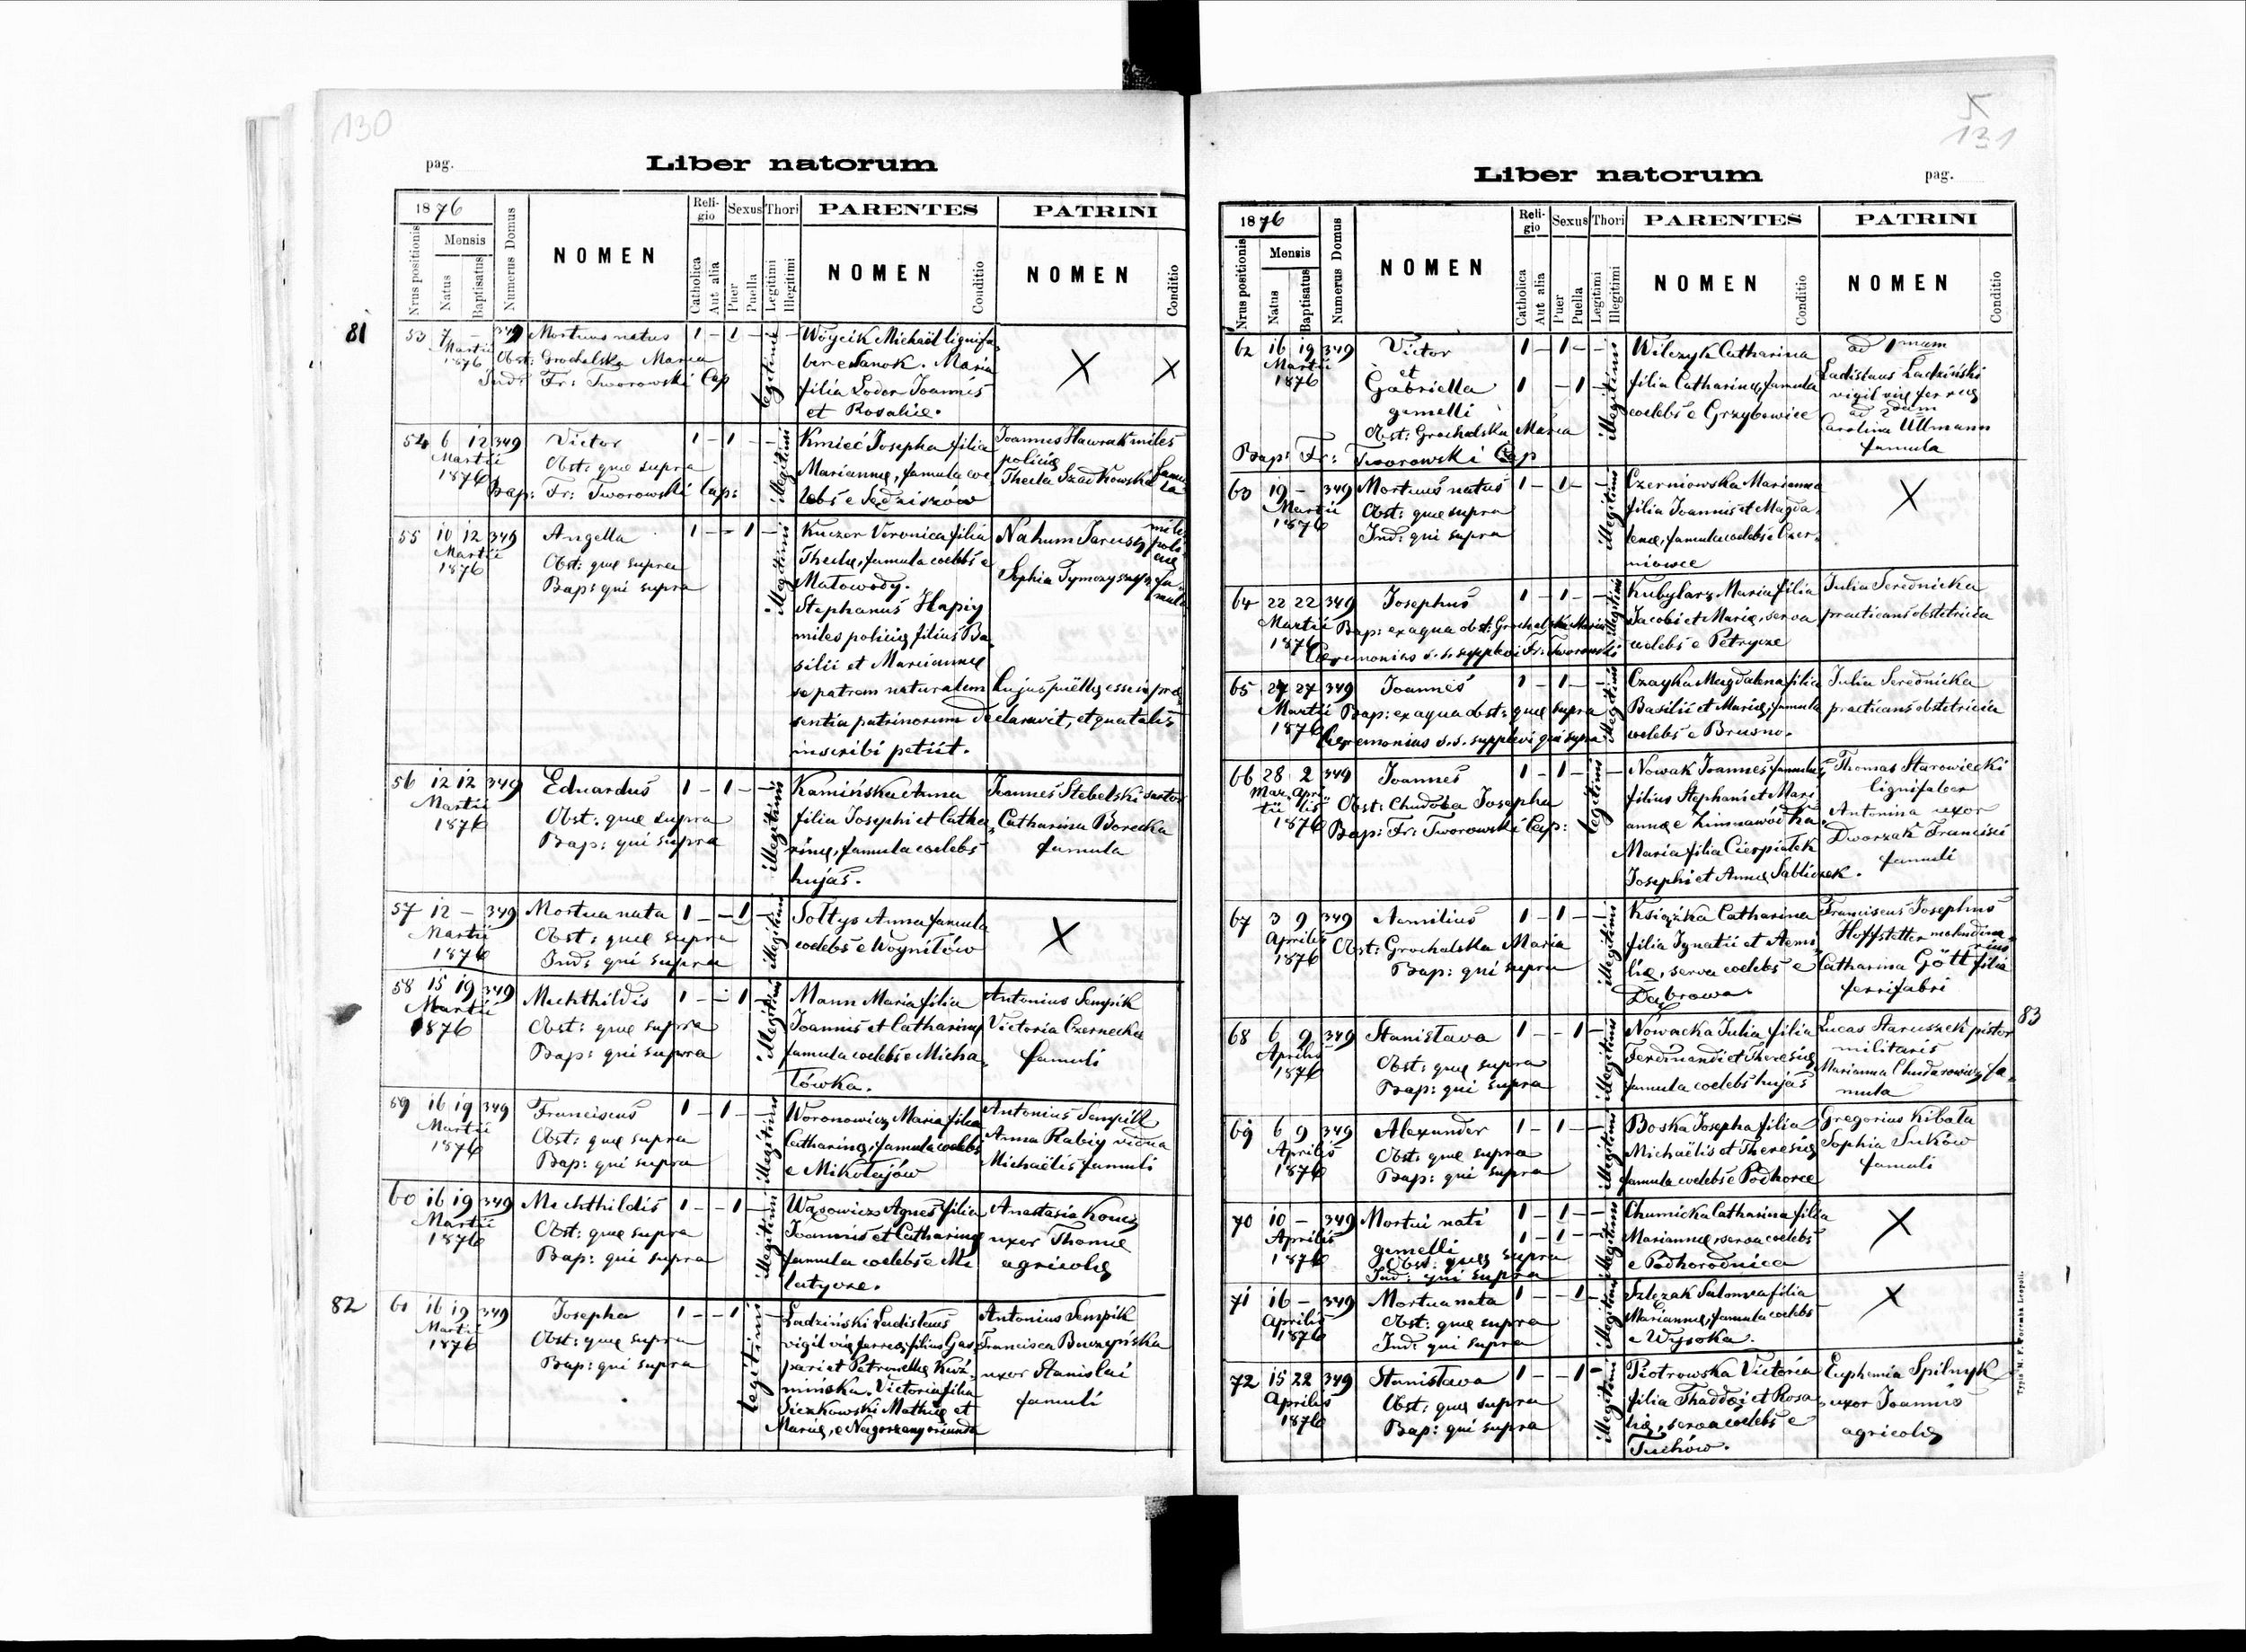 130
pag.
Liber natorum
1876
Nrus positionis
Mensis
Natus
Baptisatus
Numerus Domus
NOMEN
Religio
Catholica
Aut alia
Sexus
Puer
Puella
Thori
Legitimi
Illegitimi
PARENTES
NOMEN
Conditio
PATRINI
NOMEN
Conditio
81
53 7 - 349 Mortuus natus 1 - 1 - - legitimi
Martii 1876
Obst: Grochalska Maria
Ind: Fr: Tworowski Cap
Wóycik Michaël lignifa
ber e Sanok. Maria
filia Lodor Joannis
et Rosaliæ.
X X
54 6 12 349 Victor 1 - 1 - - illegitimi
Martii 1876
Obst: quæ supra
Bap: Fr: Tworowski Cap:
Kmieć Josepha filia
Mariannæ, famula coe
lebs e Sędziszów
Joannes Hawrak miles
policiæ
Thecla Szadkowska famu
la
55 10 12 349 Angella 1 - - 1 - illegitimi
Martii 1876
Obst: quæ supra
Bap: qui supra
Kuczer Veronica filia
Theclæ, famula coelebs e
Matowody.
Stephanus Hapiy
miles policiæ filius Ba
silii et Mariannæ
se patrem naturalem hujus puëllæ esse in præ
sentia patrinorum declaravit, et qua talis
inscribi petiit.
Nahum Jarusz miles
poli
ciæ
Sophia Tymczyszyn fa
mula
56 12 12 349 Eduardus 1 - 1 - - illegitimi
Martii 1876
Obst: quæ supra
Bap: qui supra
Kamińska Anna
filia Josephi et Catha
rinæ, famula coelebs
hujas.
Joannes Stebelski sartor
Catharina Borecka
famula
57 12 - 349 Mortua nata 1 - - 1 - illegitimi
Martii 1876
Obst: quæ supra
Ind: qui supra
Sołtys Anna famula
coelebs e Woyniłów
X
58 15 19 349 Mechthildis 1 - - 1 - illegitimi
Martii 1876
Obst: quæ supra
Bap: qui supra
Mann Maria filia
Joannis et Catharinæ
famula coelebs e Micha
łówka.
Antonius Sempik
Victoria Czernecka
famuli
59 16 19 349 Franciscus 1 - 1 - illegitimi
Martii 1876
Obst: quæ supra
Bap: qui supra
Woronowicz Maria filia
Catharinæ, famula coelebs
e Mikołajów
Antonius Sempik
Anna Rabiy vidua
Michaëlis famuli
60 16 19 349 Mechthildis 1 - - 1 - illegitimi
Martii 1876
Obst: quæ supra
Bap: qui supra
Wąsowicz Agnes filia
Joannis et Catharinæ
famula coelebs e Mi
latycze.
Anastasia Koney
uxor Thomæ
agricolæ
82
61 16 19 349 Josepha 1 - - 1 legitimi
Martii 1876
Obst: quæ supra
Bap: qui supra
Ładziński Ladislaus
vigil viæ ferreæ, filius Gas
pari et Petronellæ Kuź
mińska. Victoria filia
Sieczkowski Mathiæ et
Mariæ, e Nagorzany oriunda
Antonius Sempik
Francisca Buczyńska
uxor Stanislai
famuli
5
131
Liber natorum
pag.
1876
Nrus positionis
Mensis
Natus
Baptisatus
Numerus Domus
NOMEN
Religio
Catholica
Aut alia
Sexus
Puer
Puella
Thori
Legitimi
Illegitimi
PARENTES
NOMEN
Conditio
PATRINI
NOMEN
Conditio
62 16 19 349 Victor 1 - 1 - - illegitimi
Martii 1876
et
Gabriella 1 - 1 -
gemelli
Obst: Grochalska Maria
Bap: Fr: Tworowski Cap
Wilczyk Catharina
filia Catharinæ, famula
coelebs e Grzybowice
ad 1mum
Ladislaus Ładziński
vigil viæ ferreæ
ad 2dam
Carolina Ullmann
famula
63 19 - 349 Mortuus natus 1 - 1 - - illegitimi
Martii 1876
Obst: quæ supra
Ind: qui supra
Czerniowska Marianna
filia Joannis et Magda
lenæ, famula coelebs e Czer
niowce
X
64 22 22 349 Josephus 1 - 1 - - illegitimi
Martii 1876
Bap: ex aqua obst: Grochalska Maria
Cæremonias s. s. supplevi Fr: Tworowski
Kubylarz Maria filia
Jacobi et Mariæ, serva
coelebs e Petrycze
Julia Serednicka
practicans obstetricia
65 27 27 349 Joannes 1 - 1 - - illegitimi
Martii 1876
Bap: ex aqua obst: quæ supra
Cæremonias s. s. supplevi qui supra
Czayka Magdalena filia
Basilii et Mariæ, famula
coelebs e Brusno.
Julia Serednicka
practicans obstetricia
66 28 2 349 Joannes 1 - 1 - - legitimi
Martii Aprilis 1876
Obst: Chudoba Josepha
Bap: Fr: Tworowski Cap:
Nowak Joannes famulus
filius Stephani et Mari
annæ e Zimnawódka.
Maria filia Cierpiatek
Josephi et Annæ Sabliczek.
Thomas Starowiecki
lignifaber
Antonina uxor
Dworzak Francisci
famuli
67 3 9 349 Aemilius 1 - 1 - - illegitimi
Aprilis 1876
Obst: Grochalska Maria
Bap: qui supra
Książka Catharina
filia Ignatii et Aemi
liæ, serva coelebs e
Dąbrowa.
Franciscus Josephus
Hoffstetter molendina
rius
Catharina Gött filia
ferrifabri
83
68 6 9 349 Stanisława 1 - - 1 - illegitimi
Aprilis 1876
Obst: quæ supra
Bap: qui supra
Nowacka Julia filia
Ferdinandi et Theresiæ
famula coelebs hujas
Lucas Staruszek pistor
militaris
Marianna Chudarowicz fa
mula
69 6 9 349 Alexander 1 - 1 - - illegitimi
Aprilis 1876
Obst: quæ supra
Bap: qui supra
Boska Josepha filia
Michaëlis et Theresiæ
famula coelebs e Podhorce
Gregorius Kibała
Sophia Suków
famuli
70 10 - 349 Mortui nati 1 - 1 - - illegitimi
Aprilis 1876
gemelli 1 - 1 - -
Obst: quæ supra
Ind: qui supra
Chumicka Catharina filia
Mariannæ, serva coelebs
e Podhorodnica
X
71 16 - 349 Mortua nata 1 - - 1 - illegitimi
Aprilis 1876
Obst: quæ supra
Ind: qui supra
Szlezak Salomea filia
Mariannæ, famula coelebs
e Wysoka.
X
72 15 22 349 Stanisława 1 - - 1 - illegitimi
Aprilis 1876
Obst: quæ supra
Bap: qui supra
Piotrowska Victoria
filia Thaddæi et Rosa
liæ, serva coelebs e
Tuchów.
Euphemia Spilnyk
uxor Joannis
agricolæ